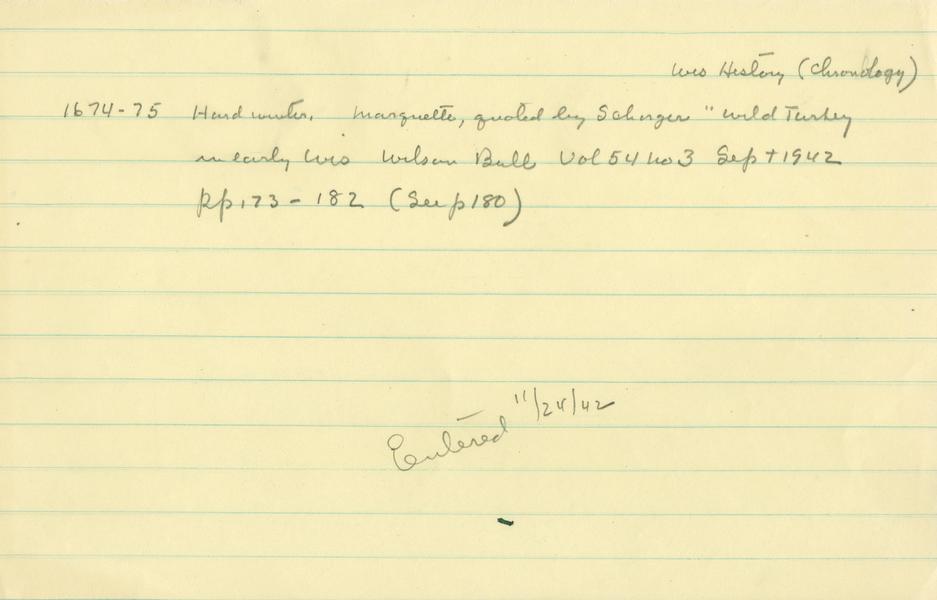 Wis History (Chronology)
1674-75 Hard winter. Marquette, quoted by Schorger "Wild Turkey
in early Wis Wilson Bull Vol 54 No 3 Sept 1942
pp 173-182 (See p 180)
Entered 11/24/42